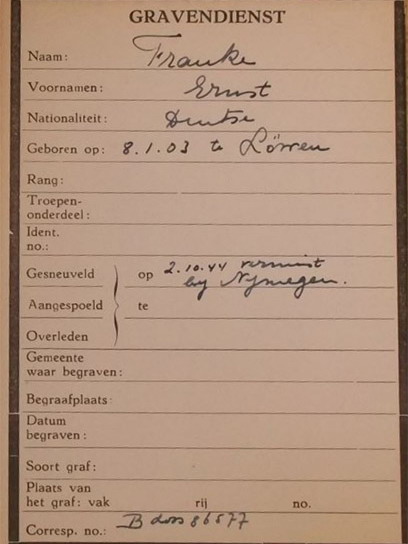 GRAVENDIENST
Naam: Franke
Voornamen: Ernst
Nationaliteit: Duitse
Geboren op: 8.1.03 te Lörren
Rang:
Troepen-
onderdeel:
Ident.
no.:
Gesneuveld op 2.10.44 vermist
by Nijmegen.
Aangespoeld te
Overleden
Gemeente
waar begraven:
Begraafplaats:
Datum
begraven:
Soort graf:
Plaats van
het graf: vak rij no.
Corresp. no.: B dos 86577